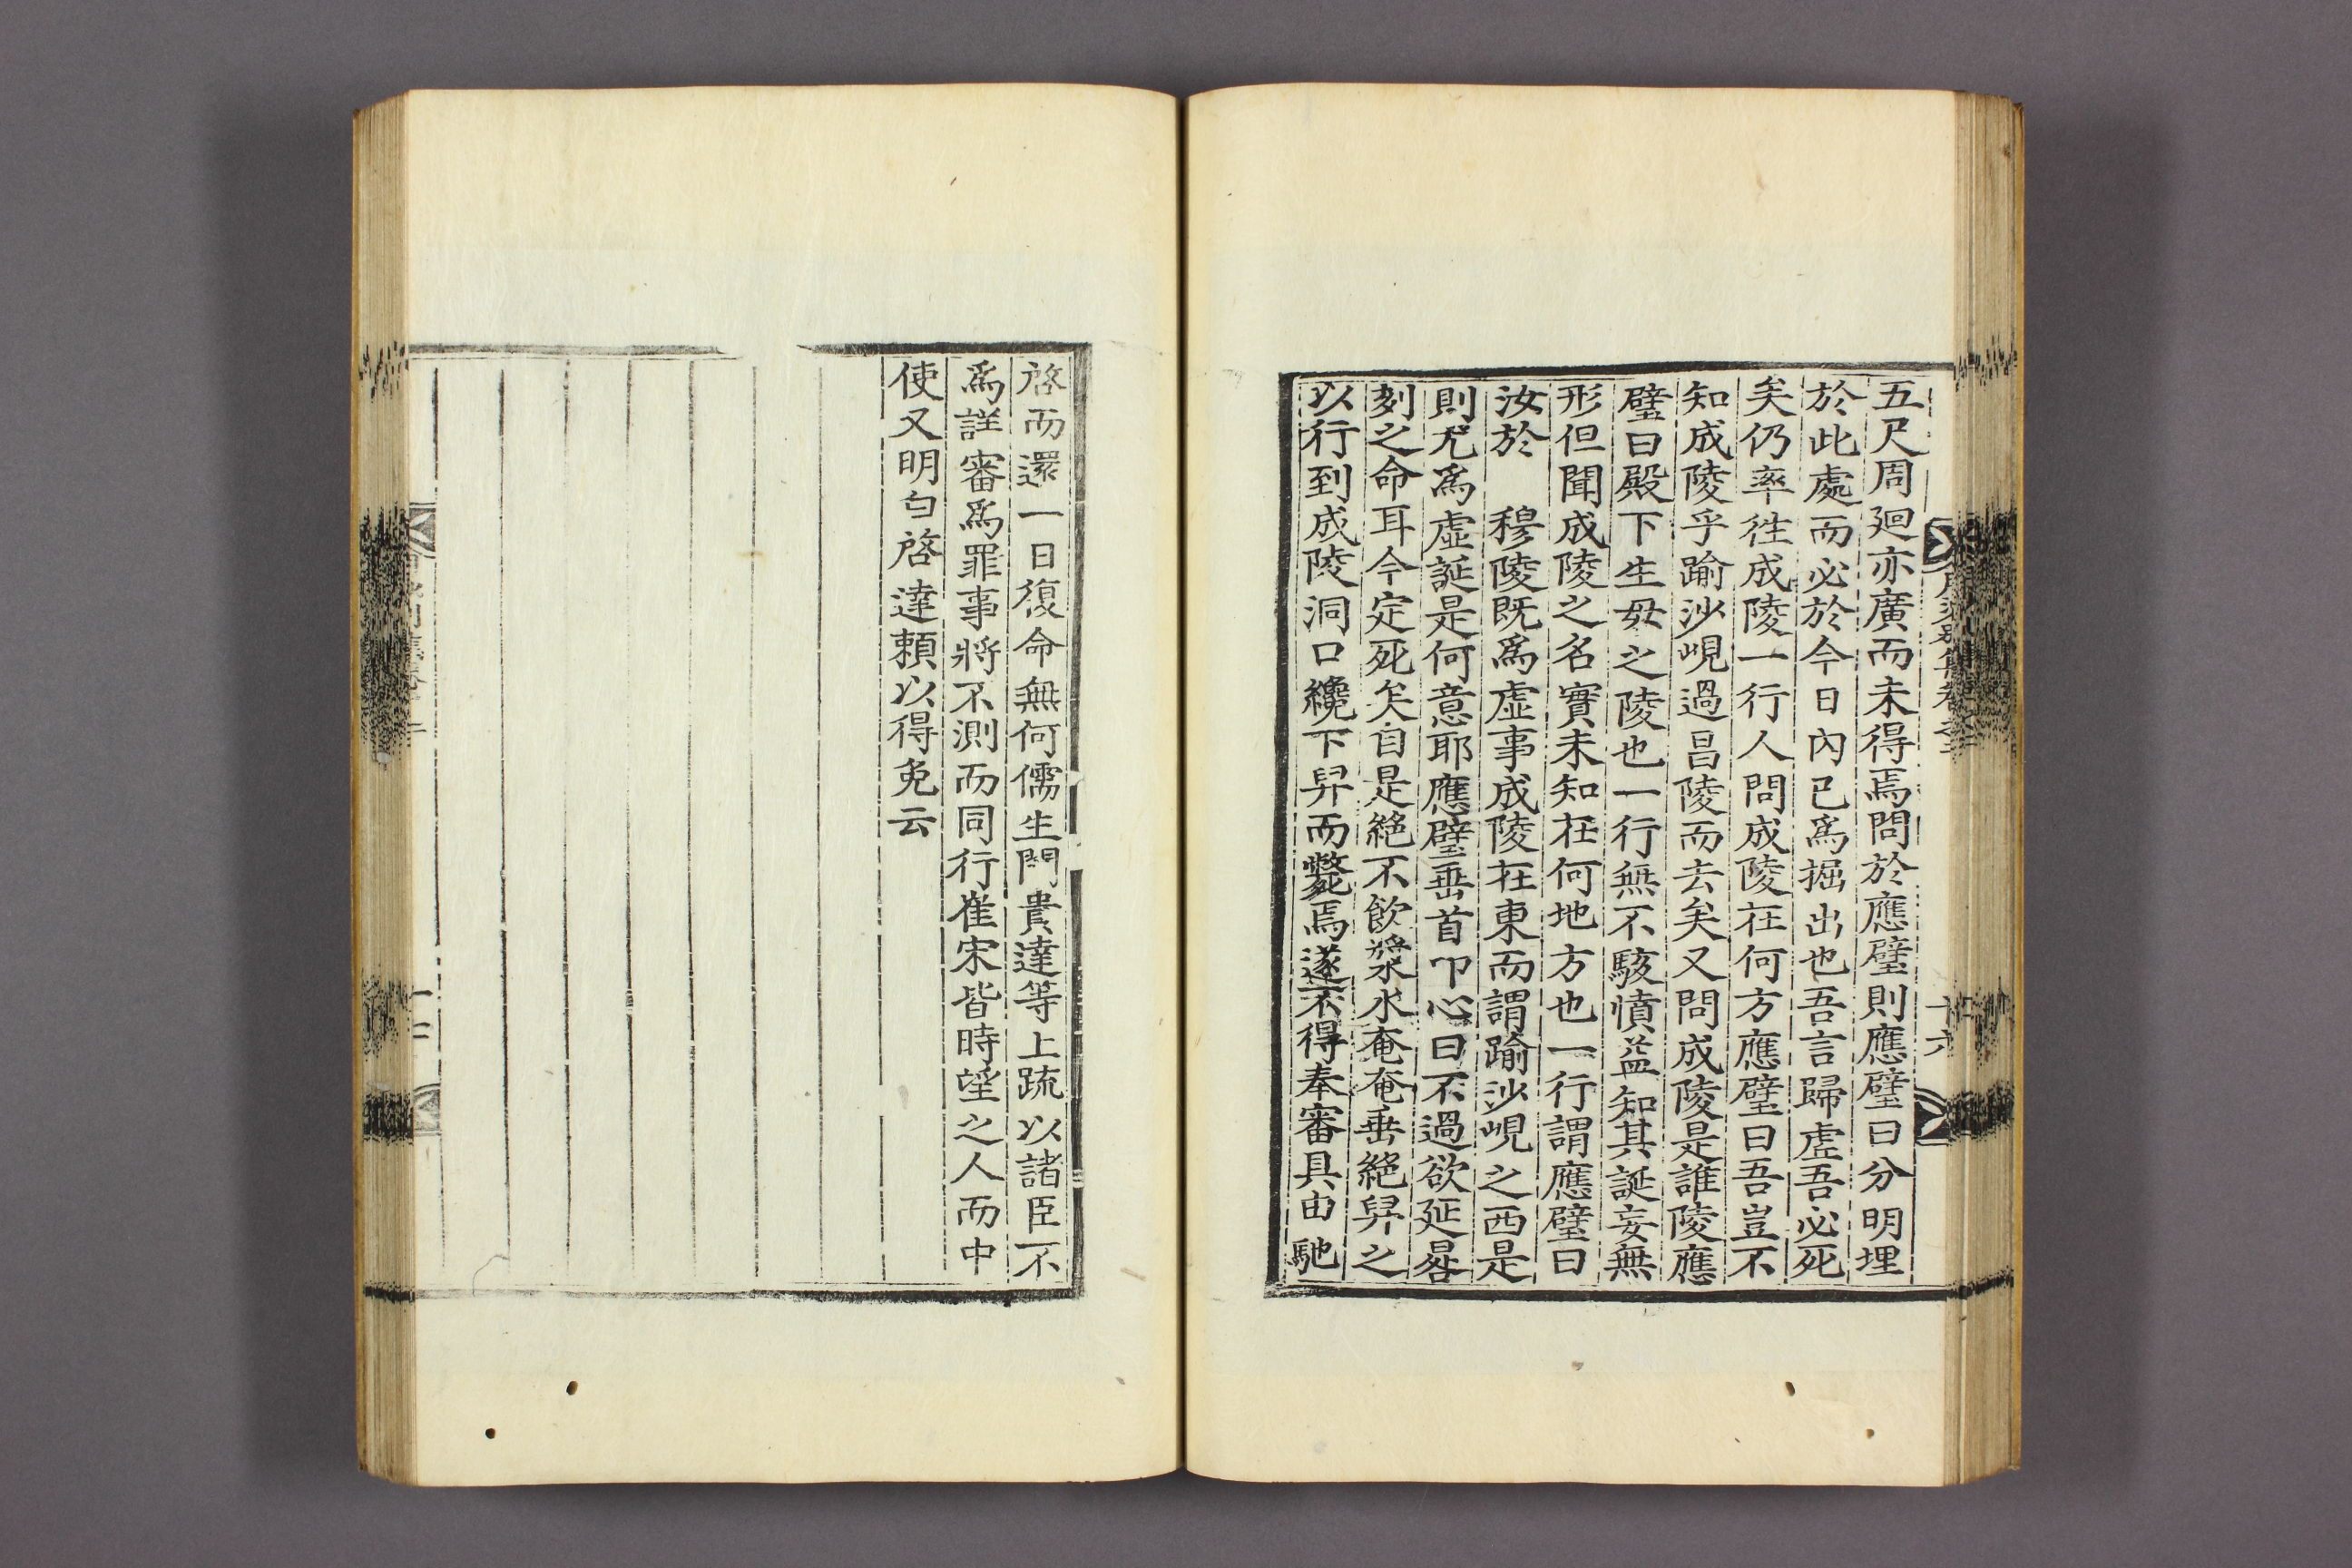 五尺周廻亦廣而未得焉問於應璧則應璧曰分明埋
於此處而必於今日內已爲掘出也吾言歸虛吾必死
矣仍率徃成陵一行人問成陵在何方應璧曰吾豈不
知成陵乎踰沙峴過昌陵而去矣又問成陵是誰陵應
璧曰殿下生母之陵也一行無不駭憤益知其誕妄無
形但聞成陵之名實未知在何地方也一行謂應璧曰
汝於　穆陵既爲虛事成陵在東而謂踰沙峴之西是
則尤爲虛誕是何意耶應璧垂首叩心曰不過欲延晷
刻之命耳今定死矣自是絶不飮漿水奄奄垂絶舁之
以行到成陵洞口纔下舁而斃焉遂不得奉審具由馳
啓而還一日復命無何儒生閔貴達等上疏以諸臣不
爲詳審爲罪事將不測而同行崔宋皆時望之人而中
使又明白啓達賴以得免云
十六